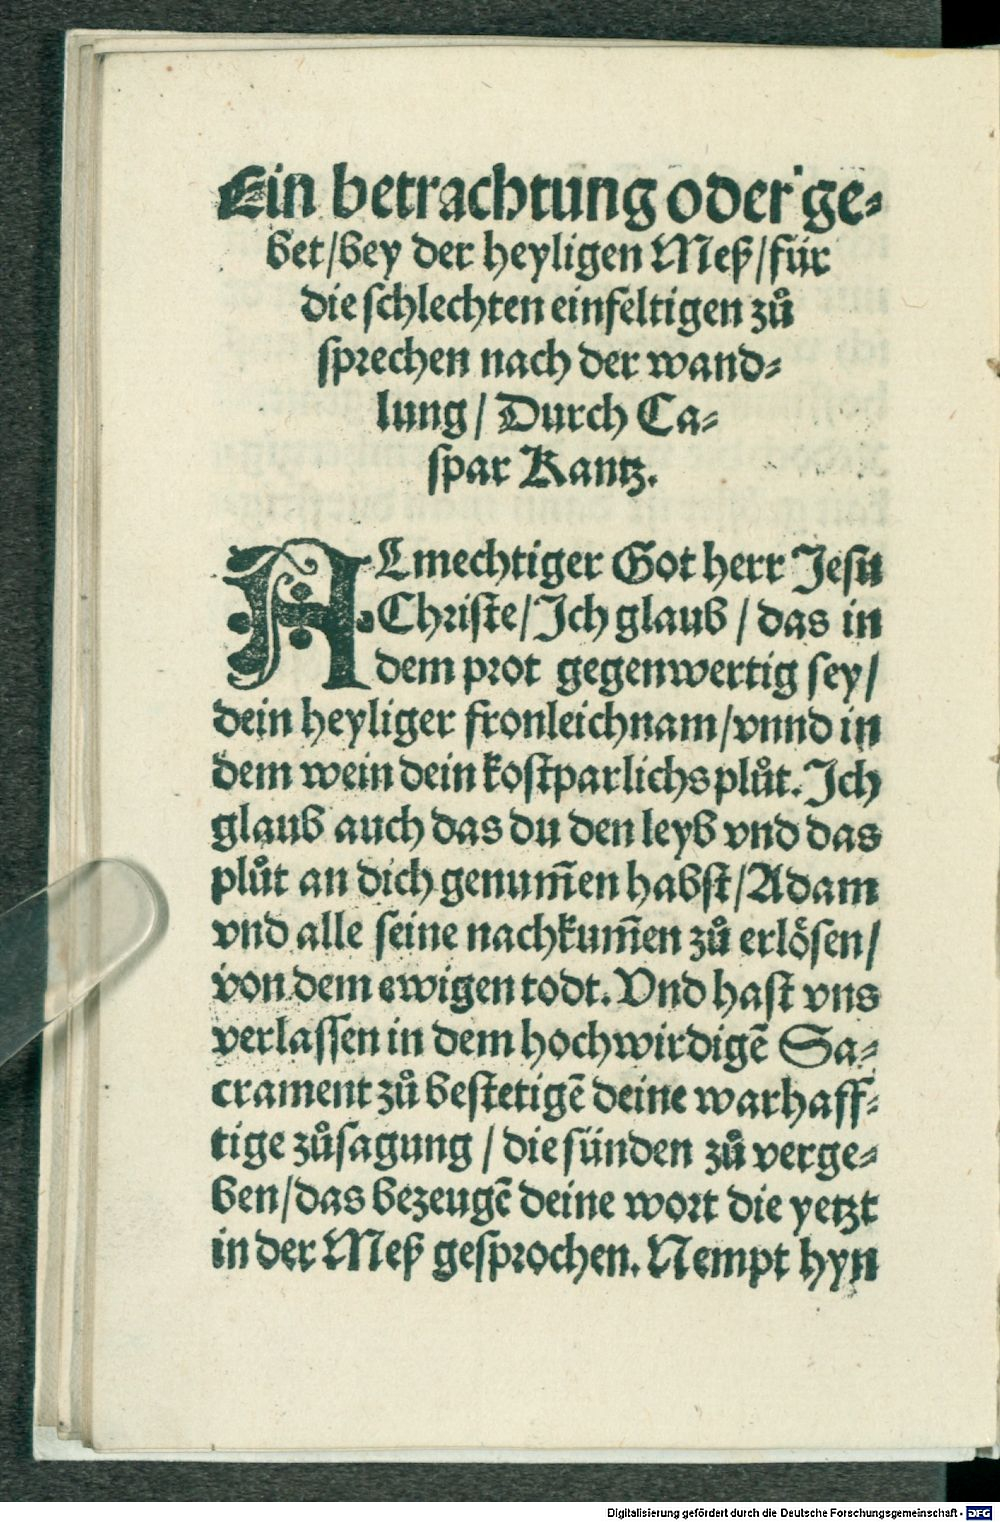 Ein betrachtung oder ge⸗
bet/bey der heyligen Meß/für
die schlechten einfeltigen zů
sprechen nach der wand⸗
lung/ Durch Ca⸗
spar Kantz.
ALmechtiger Got herr Jesu
Christe/Ich glaub / das in
dem prot gegenwertig sey/
dein heyliger fronleichnam/vnnd in
dem wein dein kostparlichs plůt. Ich
glaub auch das du den leyb vnd das
plůt an dich genum̄en habst/Adam
vnd alle seine nachkum̄en zů erlösen/
von dem ewigen todt. Vnd hast vns
verlassen in dem hochwirdigē Sa⸗
crament zů bestetigē deine warhaff⸗
tige zůsagung / die sünden zů verge⸗
ben/das bezeugē deine wort die yetzt
in der Meß gesprochen. Nempt hyn
Digitalisierung gefördert durch die Deutsche Forschungsgemeinschaft - DFG